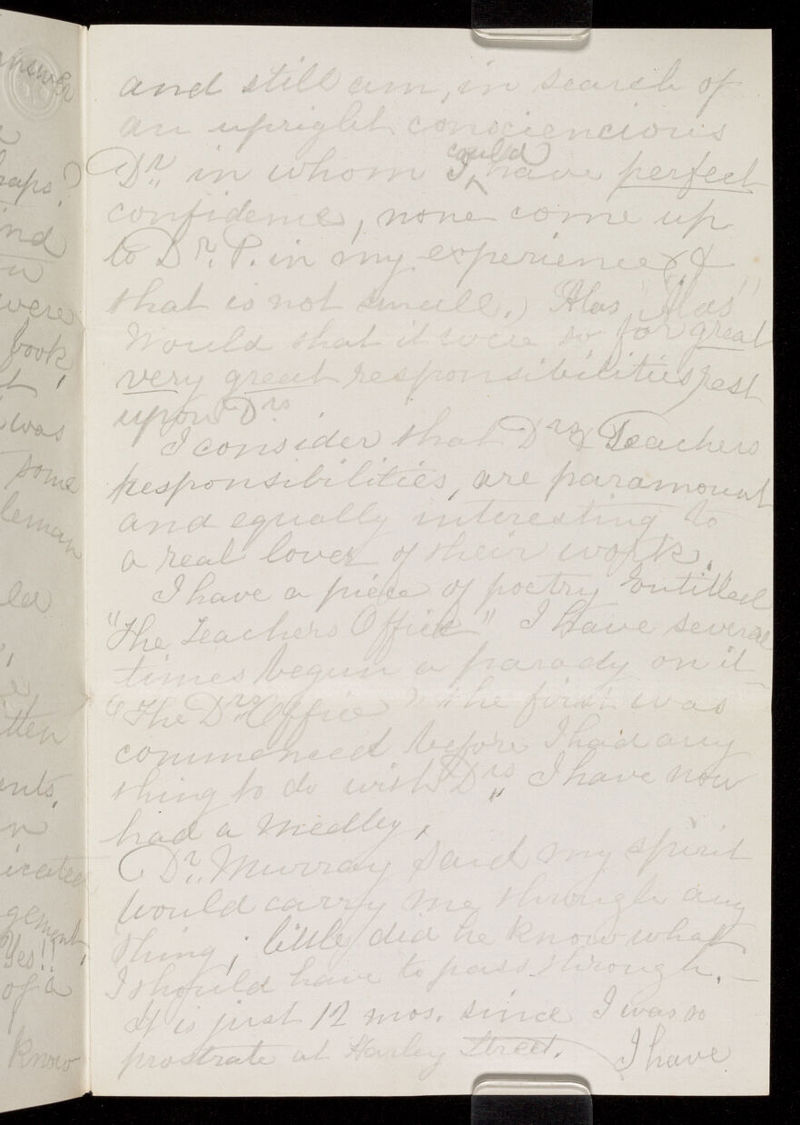 and still am, in search of
an upright consciencious
Dr. in whom I could have perfect
confidence, none come up
to Dr. P. in my experience &
that is not small.) Alas, "Alas"
Would that it were so for great
very great responsibilities rest
upon Drs
I consider that Drs & Teachers
responsibilities, are paramount
and equally interesting to
a real lover of their work.
I have a piece of poetry Entitled
"The Teachers Office" I have several
times begun a parody on it
"The Drs Office" the first was
commenced before I had any
thing to do with Drs, I have now
had a Medley,
Dr. Murray said my spirit
would carry me through any
thing; little did he know what
I should have to pass through.
It is just 12 mos. since I was so
prostrate at Harley Street. I have
answer
haps?
ind
were
book,
t
was
some
leman
led
itten
ents,
n
icated
gement,
Yes!!
of a
know